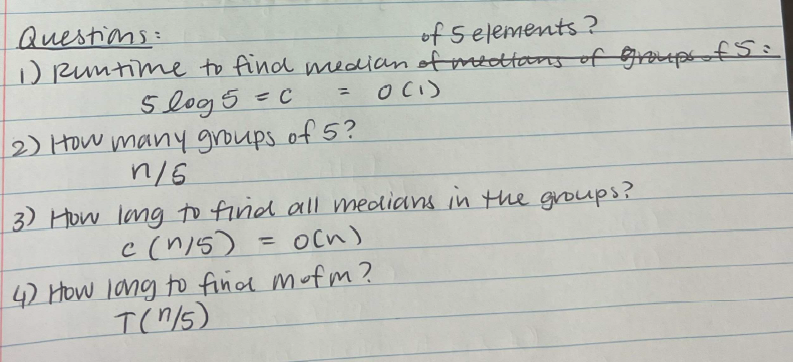 Questions:
of 5 elements?
1) Runtime to find median of medians of groups of 5:
5 log 5 = c = O(1)
2) How many groups of 5?
n/5
3) How long to find all medians in the groups?
c (n/5) = O(n)
4) How long to find mofm?
T(n/5)